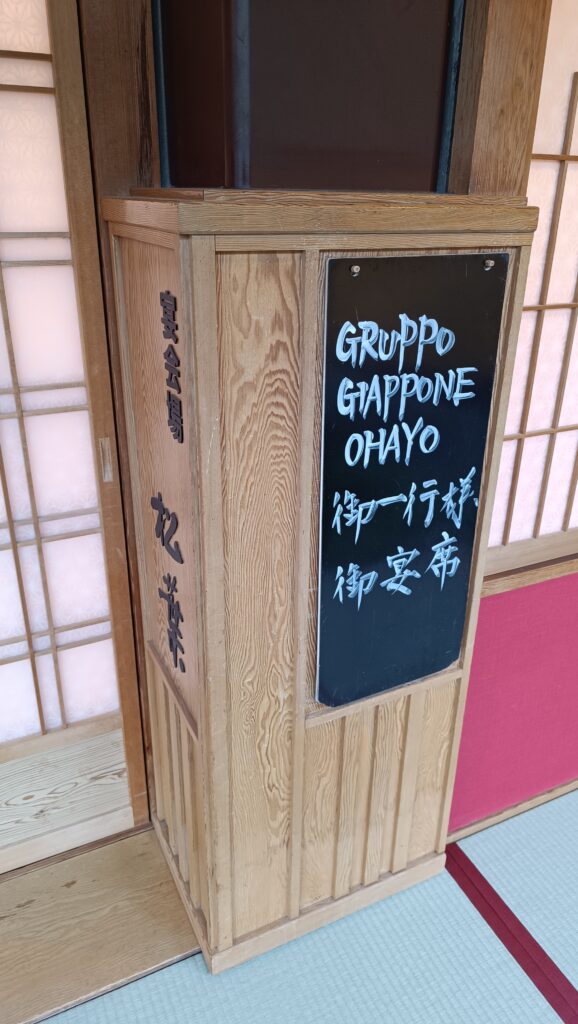 宴会場
松葉
GRUPPO
GIAPPONE
OHAYO
御一行様
御宴席